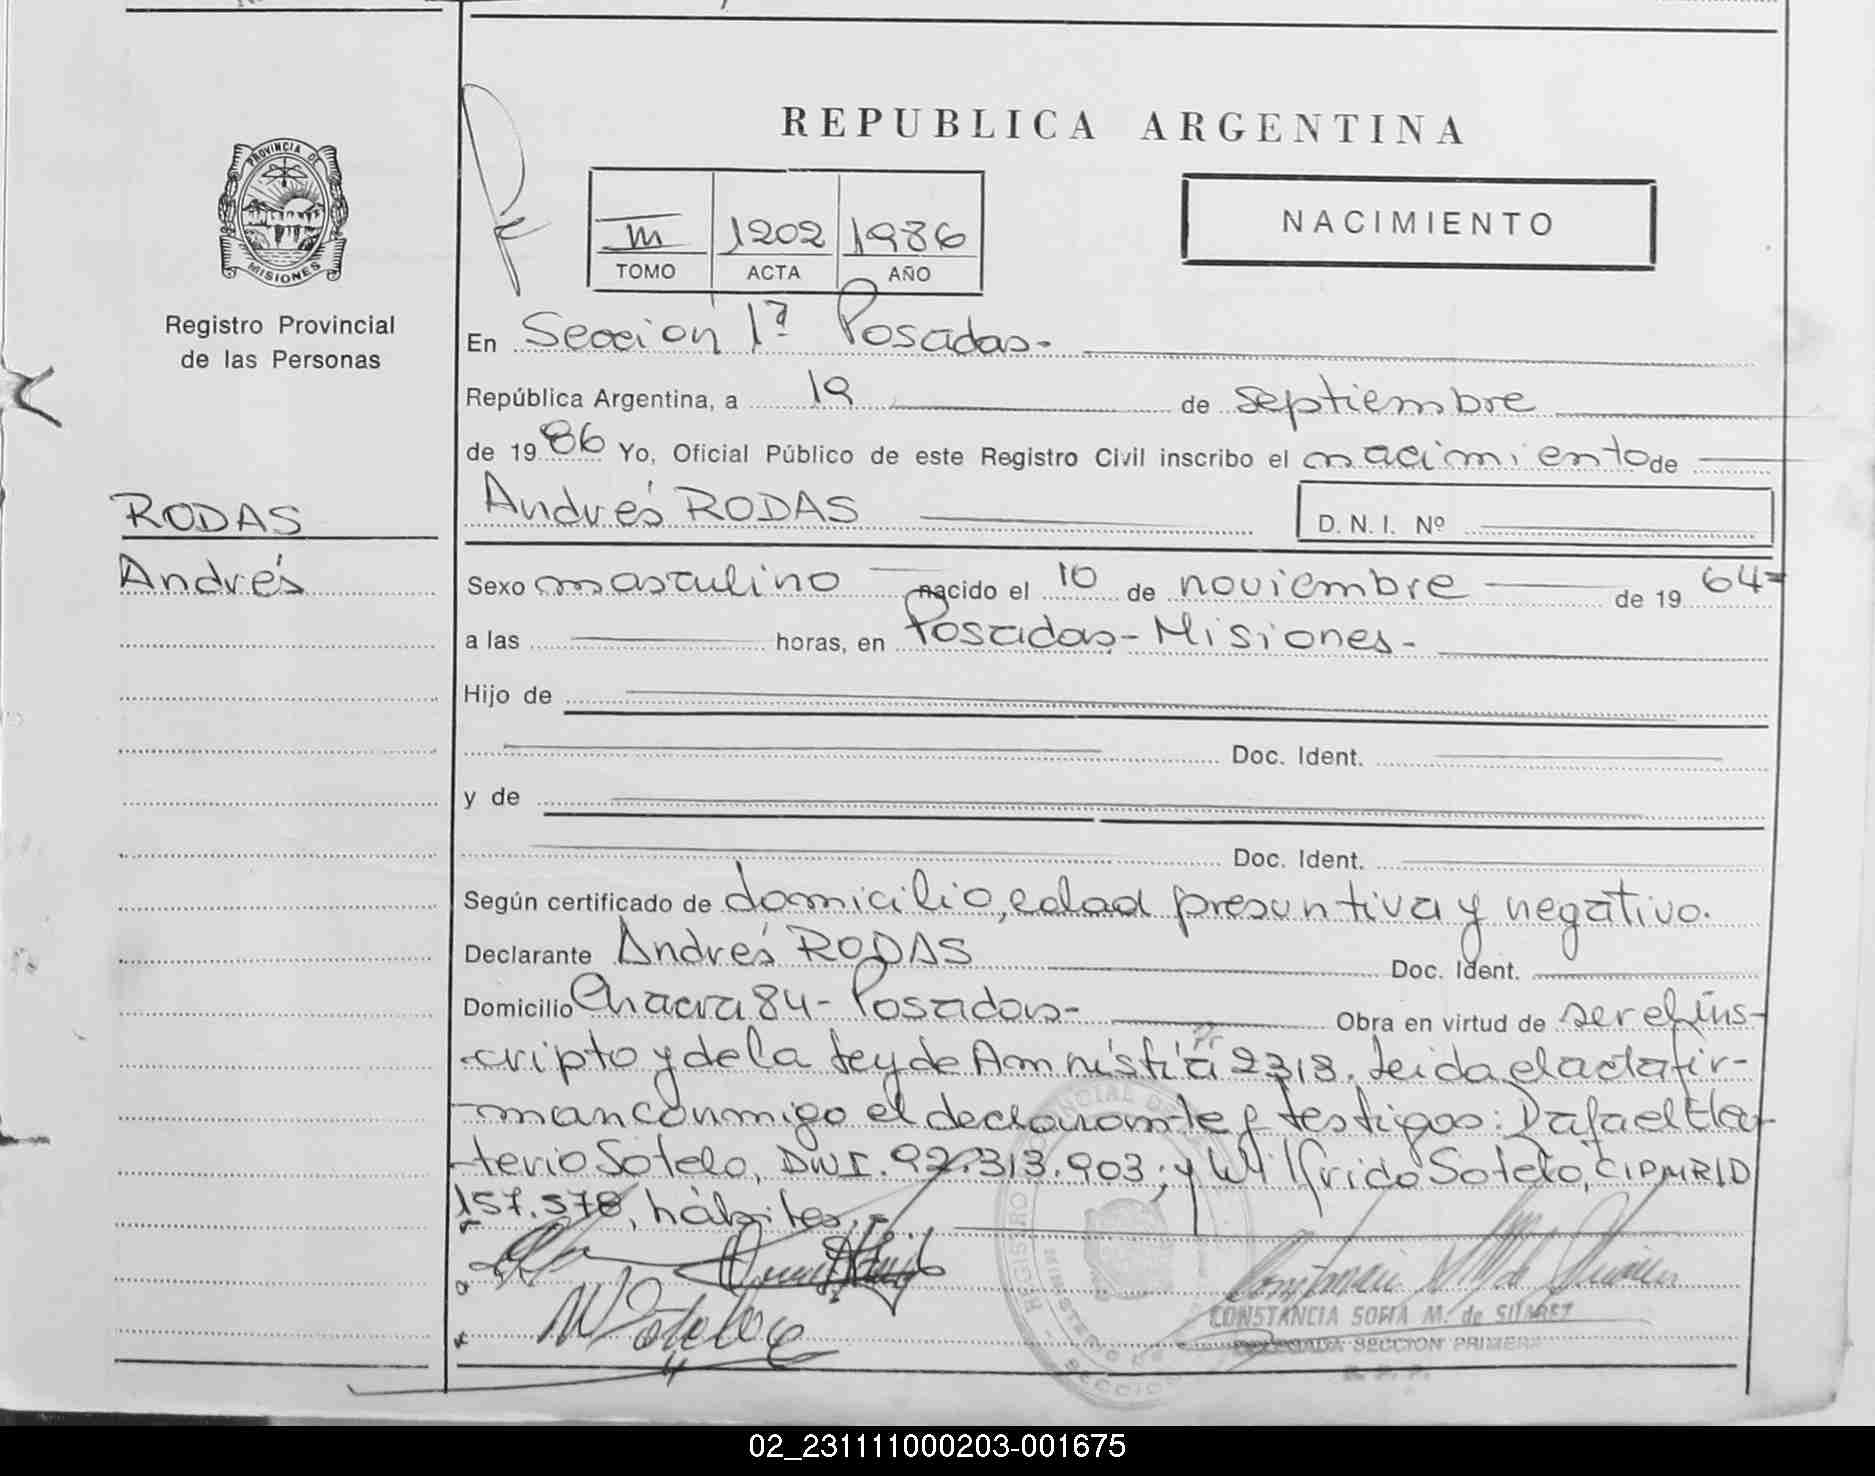 REPUBLICA ARGENTINA
PROVINCIA DE
MISIONES
Registro Provincial
de las Personas
III 1202 1986
TOMO ACTA AÑO
NACIMIENTO
En Sección 1ª Posadas.-
República Argentina, a 19 de septiembre
de 1986 Yo, Oficial Público de este Registro Civil inscribo el nacimiento de
RODAS
Andrés
Andrés RODAS D. N. I. Nº
Sexo masculino nacido el 10 de noviembre de 1964-
a las horas, en Posadas - Misiones.-
Hijo de
Doc. Ident.
y de
Doc. Ident.
Según certificado de domicilio, edad presuntiva y negativo.
Declarante Andrés RODAS Doc. Ident.
Domicilio Chacra 84 - Posadas- Obra en virtud de ser el ins-
-cripto y de la ley de Amnistía 2313. Leida el acta fir-
-man conmigo el declarante y testigos: Rafael Eleu-
-terio Sotelo, DNI. 92.313.903; y Wilfrido Sotelo, CIPMRID
157.578, hábiles.-
CONSTANCIA SOFIA M. de SUAREZ
DELEGADA SECCION PRIMERA
R. P. P.
02_231111000203-001675